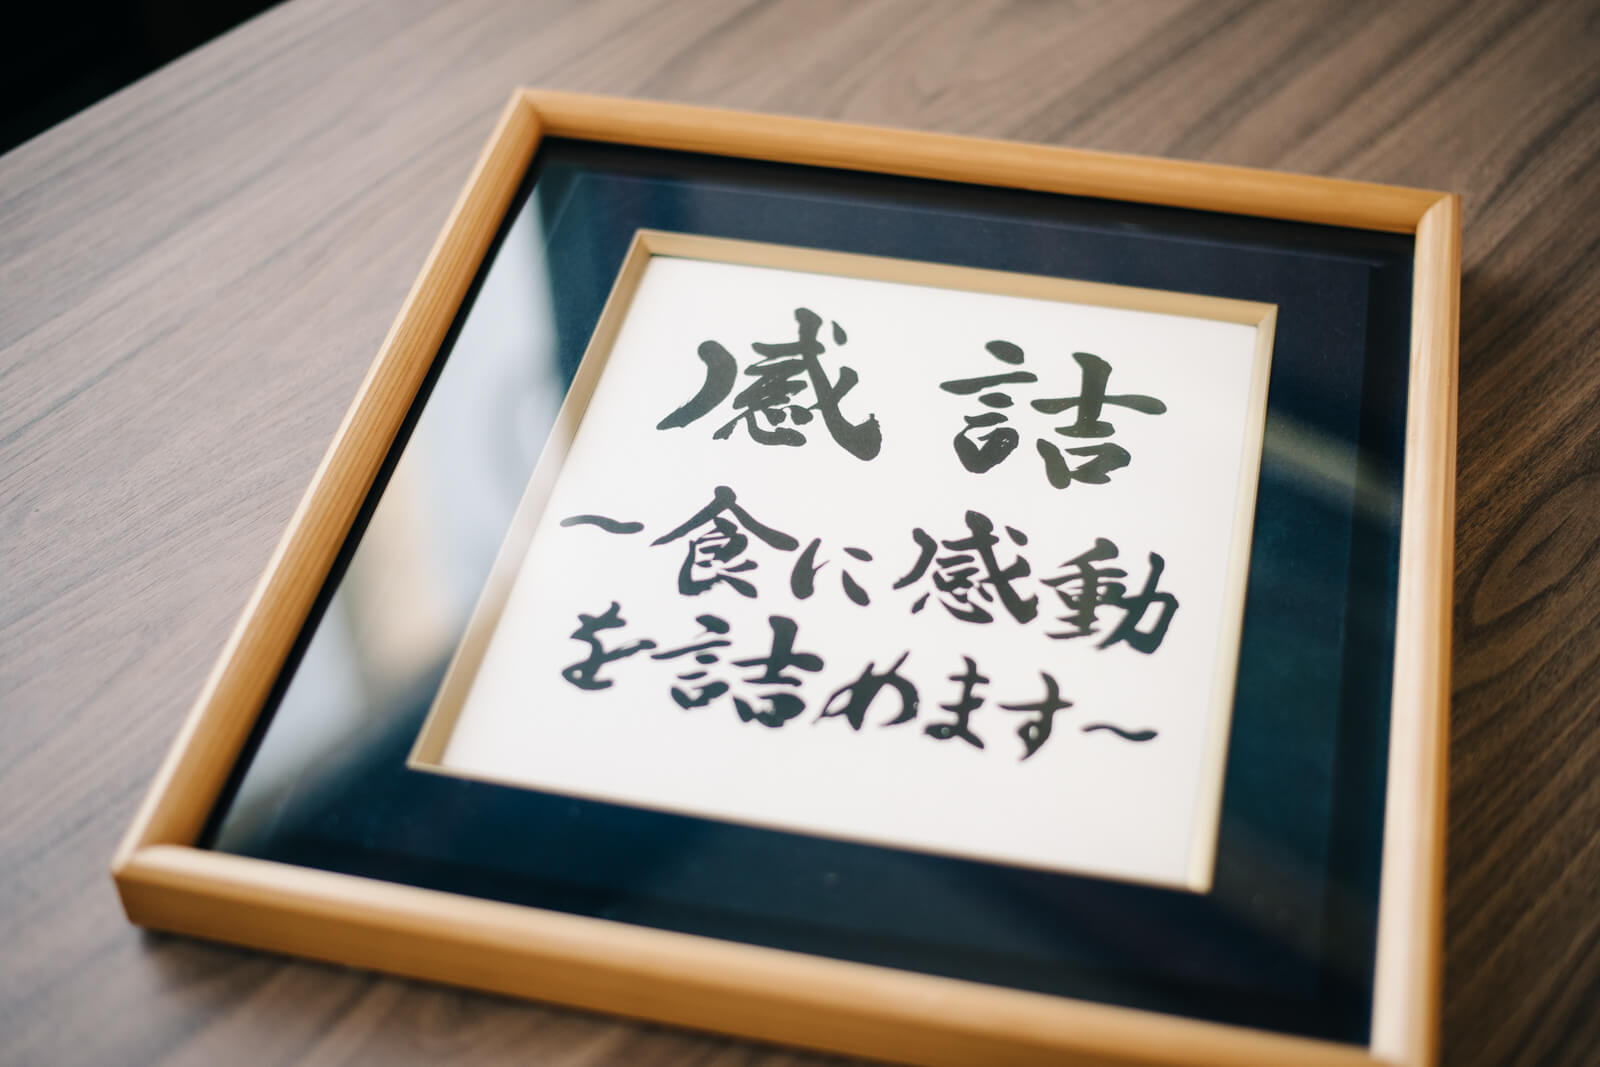 感詰
～食に感動
を詰めます～